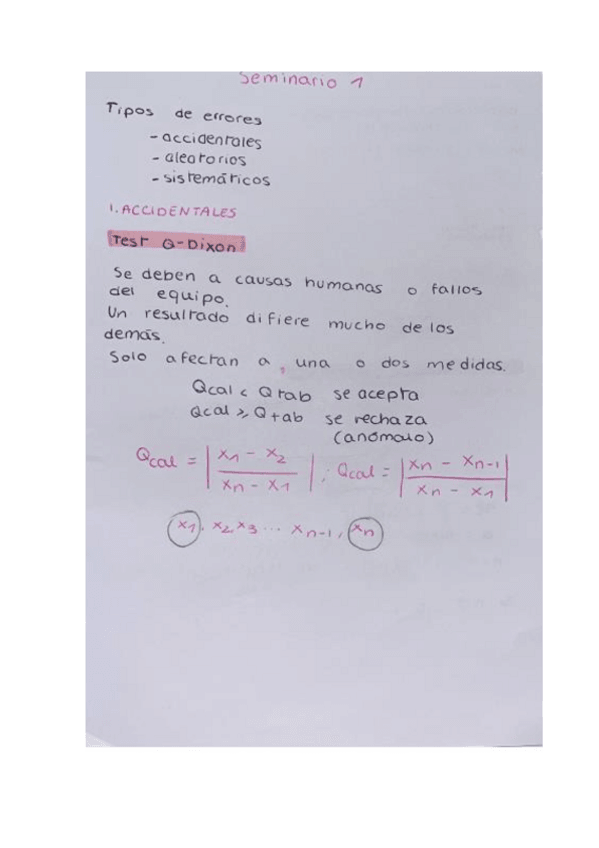 Seminario 1
Tipos de errores
- accidentales
- aleatorios
- sistemáticos
1. ACCIDENTALES
Test Q-Dixon
Se deben a causas humanas o fallos
del equipo.
Un resultado difiere mucho de los
demás.
Solo afectan a una o dos medidas.
Qcal < Qtab se acepta
Qcal ⩾ Qtab se rechaza
(anómalo)
Qcal = | (x1 - x2) / (xn - x1) | ; Qcal = | (xn - xn-1) / (xn - x1) |
x1, x2, x3 ... xn-1, xn